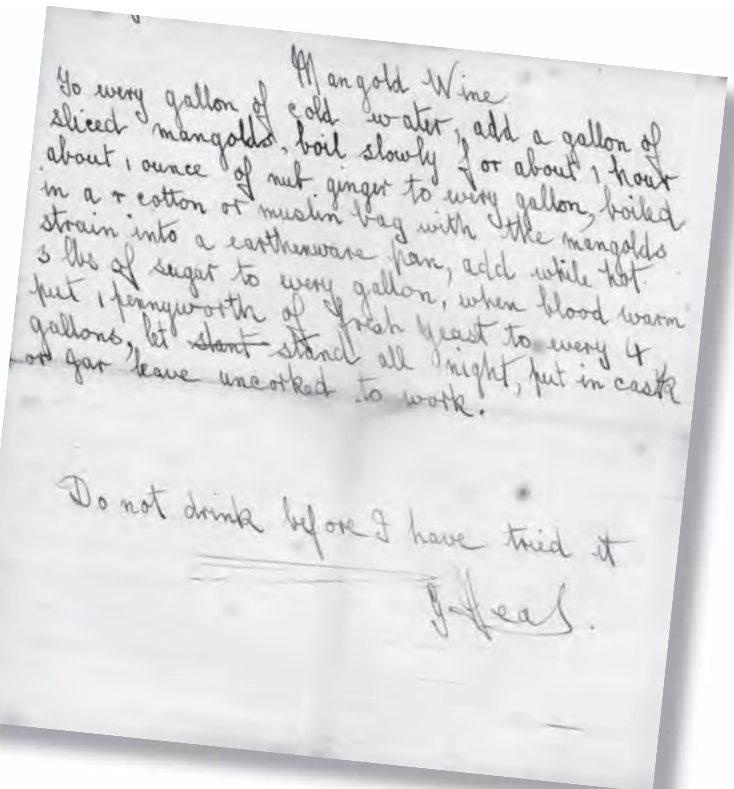 Mangold Wine
To every gallon of cold water, add a gallon of
sliced mangolds, boil slowly for about 1 hour
about 1 ounce of nut ginger to every gallon, boiled
in a cotton or muslin bag with the mangolds
strain into a earthenware pan, add while hot
3 lbs of sugar to every gallon, when blood warm
put 1 pennyworth of fresh yeast to every 4
gallons, let stant stand all night, put in cask
or gar leave uncorked to work.
Do not drink before I have tried it